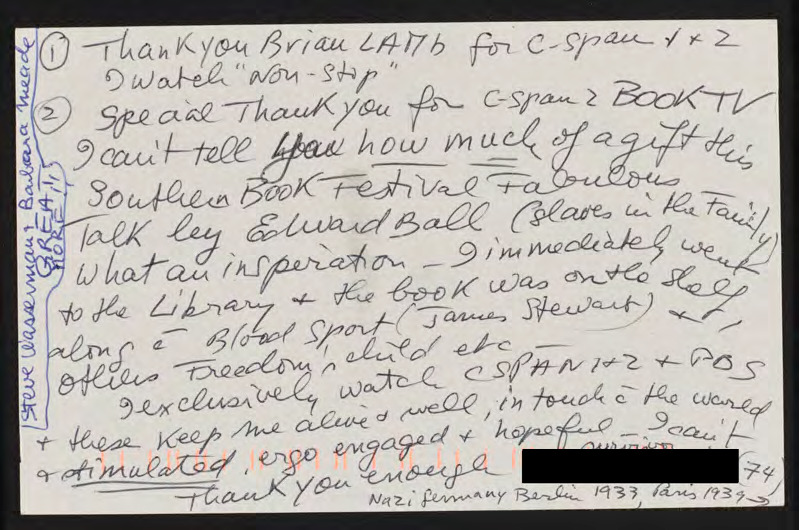 ① Thank you Brian LAMb for C-span 1 + 2
I watch "Non-Stop"
② Special Thank you for C-span 2 BOOK TV
I can't tell you how much of a gift this
Southern Book Festival Fabulous
Talk by Edward Ball (Slaves in the Family)
What an insperiation – I immediately went
to the Library + the book was on the shelf,
along c̄ Blood Sport (James Stewart) +
others Freedom's child etc
I exclusively watch CSPAN 1+2 + PBS
+ these keep me alive + well, in touch c̄ the world
+ stimulated, ergo engaged + hopeful – I can't
Thank you enough
survivor (74)
Nazi Germany Berlin 1933, Paris 1939 →
Steve Wasserman + Barbara Meade
GREAT!!!
MORE!